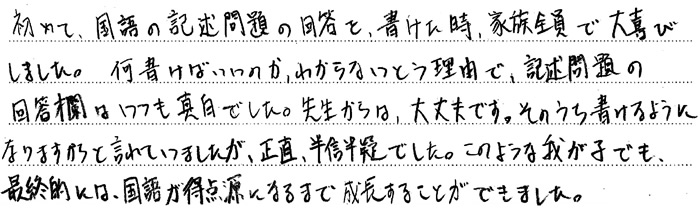 初めて、国語の記述問題の回答を、書けた時、家族全員で大喜び
しました。 何書けばいいのか、わからないという理由で、記述問題の
回答欄はいつも真白でした。先生からは、大丈夫です。そのうち書けるように
なりますからと言われていましたが、正直、半信半疑でした。このような我が子でも、
最終的には、国語が得点源になるまで成長することができました。